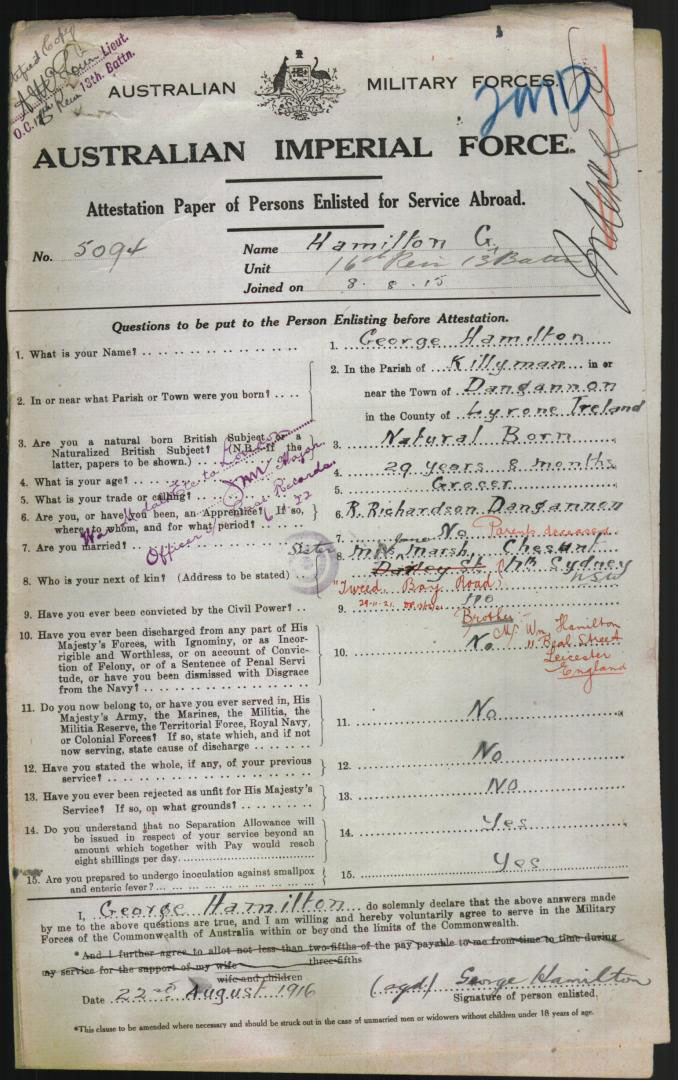 Certified Copy
Lieut.
O.C. 16th Rein 13th. Battn.
AUSTRALIAN MILITARY FORCES.
AUSTRALIAN IMPERIAL FORCE.
Attestation Paper of Persons Enlisted for Service Abroad.
No. 5094
Name Hamilton G.
Unit 16th Rein 13 Battn
Joined on 8. 8. 15
Questions to be put to the Person Enlisting before Attestation.
1. What is your Name?
1. George Hamilton
2. In or near what Parish or Town were you born?
2. In the Parish of Killyman in or
near the Town of Dangannon
in the County of Tyrone Ireland
3. Are you a natural born British Subject or a
Naturalized British Subject? (N.B.—If the
latter, papers to be shown.)
3. Natural Born
4. What is your age?
4. 29 years 8 months
5. What is your trade or calling?
5. Grocer
6. Are you, or have you been, an Apprentice? If so,
where, to whom, and for what period?
6. R. Richardson Dangannon
7. Are you married?
7. No Parents deceased
8. Who is your next of kin? (Address to be stated)
8. Sister Mrs Jane Marsh, Chesnut
Darley St Nth Sydney
NSW
"Tweed" Bay Road
29-11-21
9. Have you ever been convicted by the Civil Power?
9. No
Brother
Mr Wm Hamilton
11 Beal Street
Leicester
England
10. Have you ever been discharged from any part of His
Majesty's Forces, with Ignominy, or as Incor-
rigible and Worthless, or on account of Convic-
tion of Felony, or of a Sentence of Penal Servi-
tude, or have you been dismissed with Disgrace
from the Navy?
10. No
11. Do you now belong to, or have you ever served in, His
Majesty's Army, the Marines, the Militia, the
Militia Reserve, the Territorial Force, Royal Navy,
or Colonial Forces? If so, state which, and if not
now serving, state cause of discharge
11. No
12. Have you stated the whole, if any, of your previous
service?
12. No
13. Have you ever been rejected as unfit for His Majesty's
Service? If so, on what grounds?
13. NO
14. Do you understand that no Separation Allowance will
be issued in respect of your service beyond an
amount which together with Pay would reach
eight shillings per day.
14. Yes
15. Are you prepared to undergo inoculation against smallpox
and enteric fever?
15. Yes
Major
Officer i/c Base Records
I, George Hamilton do solemnly declare that the above answers made
by me to the above questions are true, and I am willing and hereby voluntarily agree to serve in the Military
Forces of the Commonwealth of Australia within or beyond the limits of the Commonwealth.
*And I further agree to allot not less than two-fifths of the pay payable to me from time to time during
three-fifths
my service for the support of my wife
wife and children
Date 22nd August 1916
(sgd) George Hamilton
Signature of person enlisted.
*This clause to be amended where necessary and should be struck out in the case of unmarried men or widowers without children under 18 years of age.